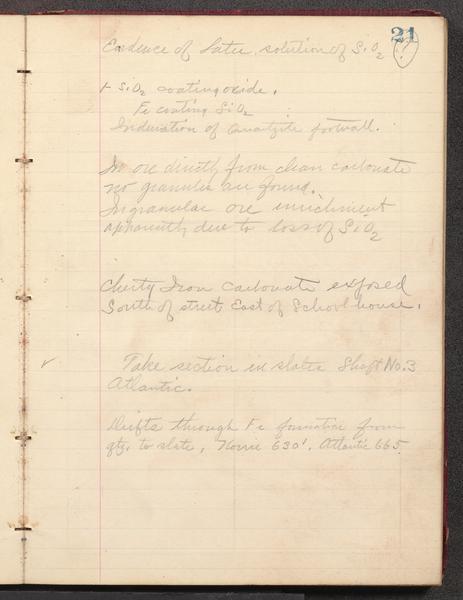 21
Evidence of later solution of SiO2 (?)
+ SiO2 coating oxide.
Fe coating SiO2
Induration of Quartzite footwall.
In ore directly from clean carbonate
no granules are found.
In granular ore enrichment
apparently due to loss of SiO2
Cherty Iron carbonate exposed
South of street East of School house.
✓ Take section in slates Shaft No. 3
Atlantic.
Drifts through Fe formation from
qtz. to slate, Norrie 630', Atlantic 665